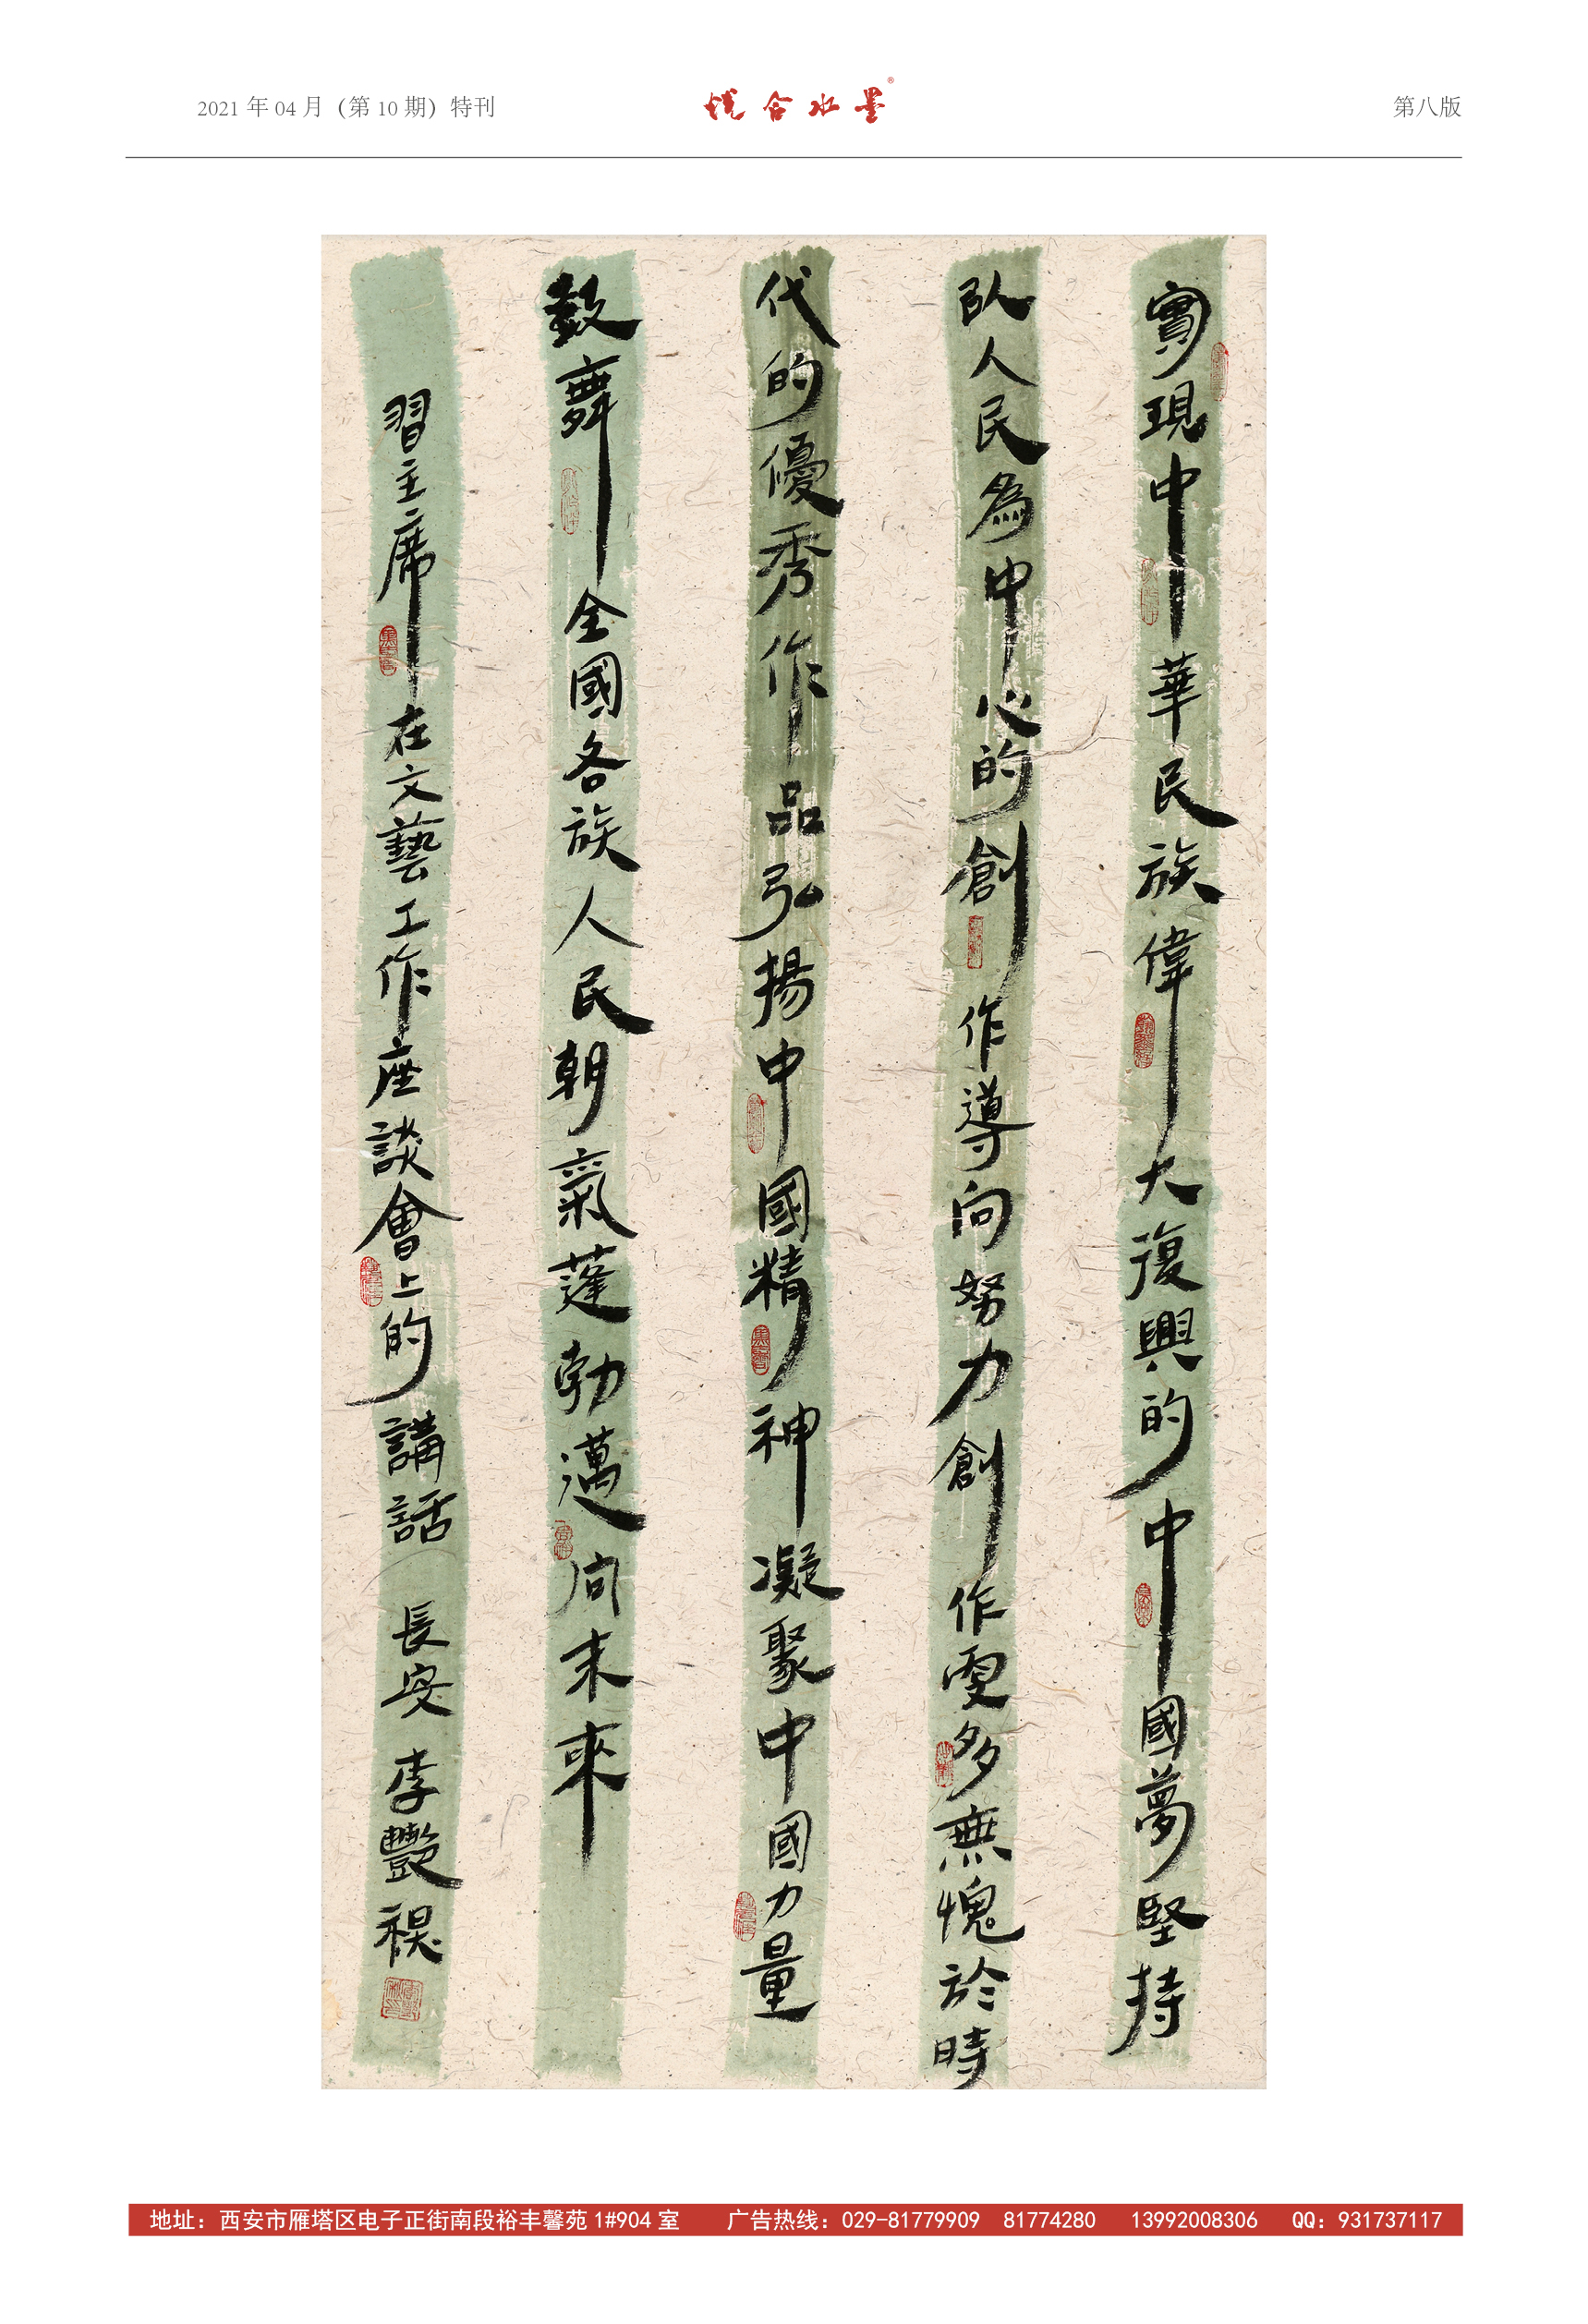 2021 年 04 月（第 10 期）特刊
悦合水墨®
第八版
實現中華民族偉大復興的中國夢堅持
以人民為中心的創作導向努力創作更多無愧於時
代的優秀作品弘揚中國精神凝聚中國力量
鼓舞全國各族人民朝氣蓬勃邁向未來
習主席在文藝工作座談會上的講話 長安 李艷
地址：西安市雁塔区电子正街南段裕丰馨苑 1#904 室 广告热线：029-81779909 81774280 13992008306 QQ：931737117